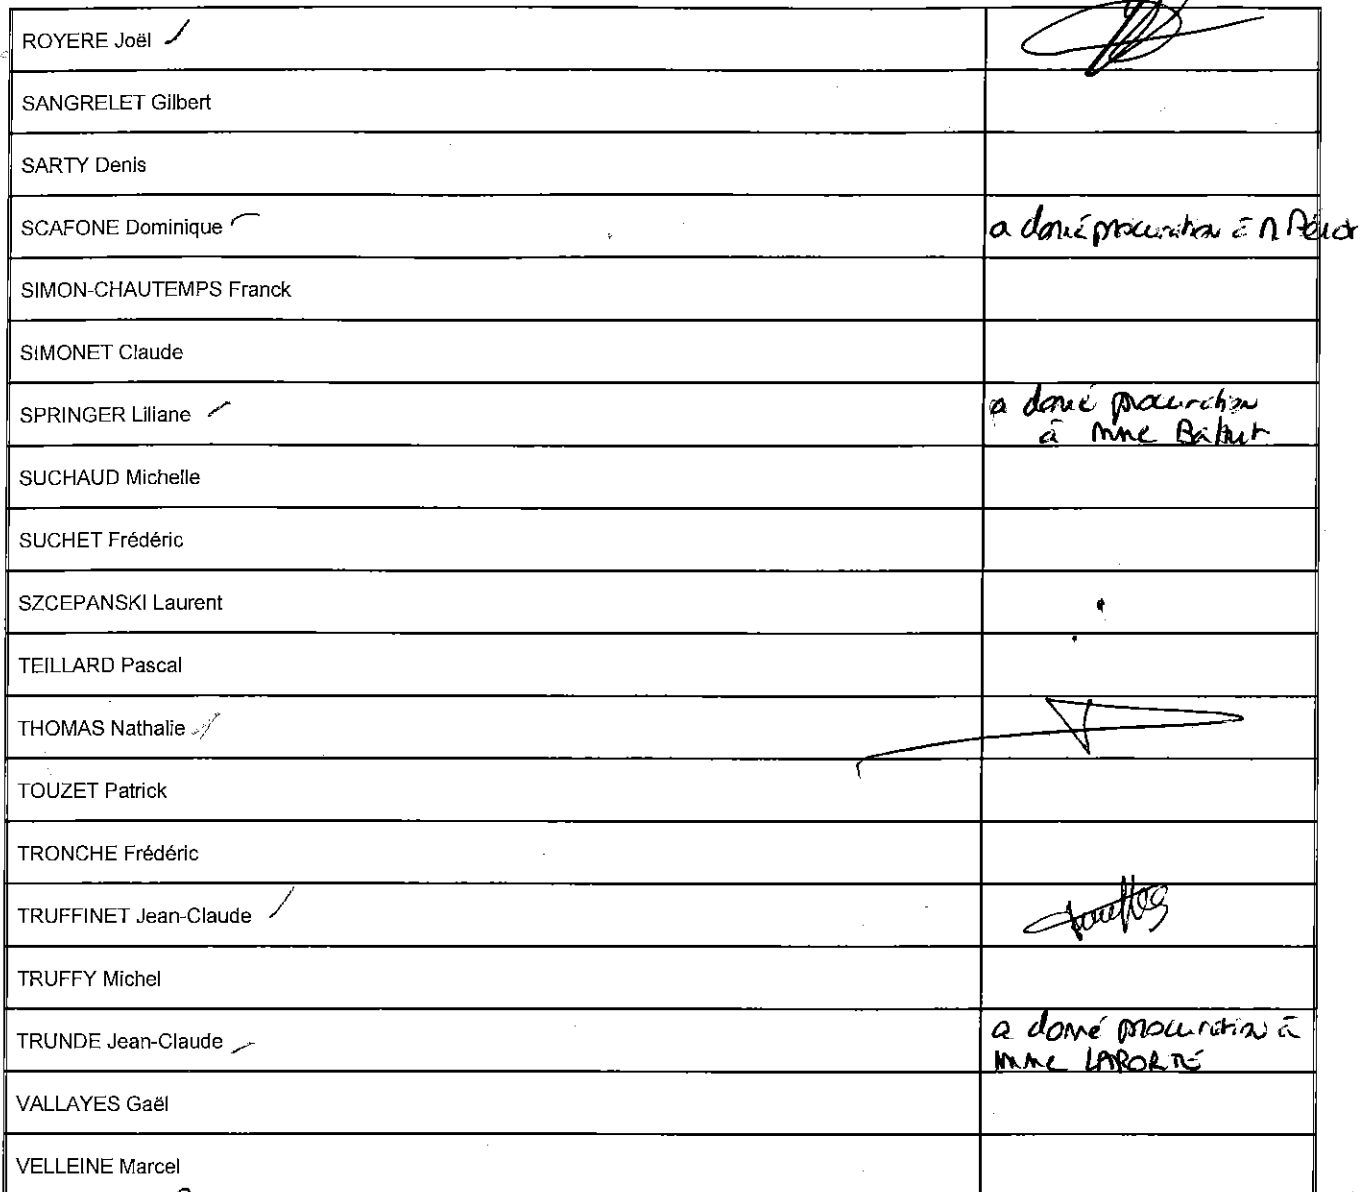 ROYERE Joël
SANGRELET Gilbert
SARTY Denis
SCAFONE Dominique
a donné procuration à M
SIMON-CHAUTEMPS Franck
SIMONET Claude
SPRINGER Liliane
a donné procuration
à Mme
SUCHAUD Michelle
SUCHET Frédéric
SZCEPANSKI Laurent
TEILLARD Pascal
THOMAS Nathalie
TOUZET Patrick
TRONCHE Frédéric
TRUFFINET Jean-Claude
TRUFFY Michel
TRUNDE Jean-Claude
a donné procuration à
Mme LAPORTE
VALLAYES Gaël
VELLEINE Marcel